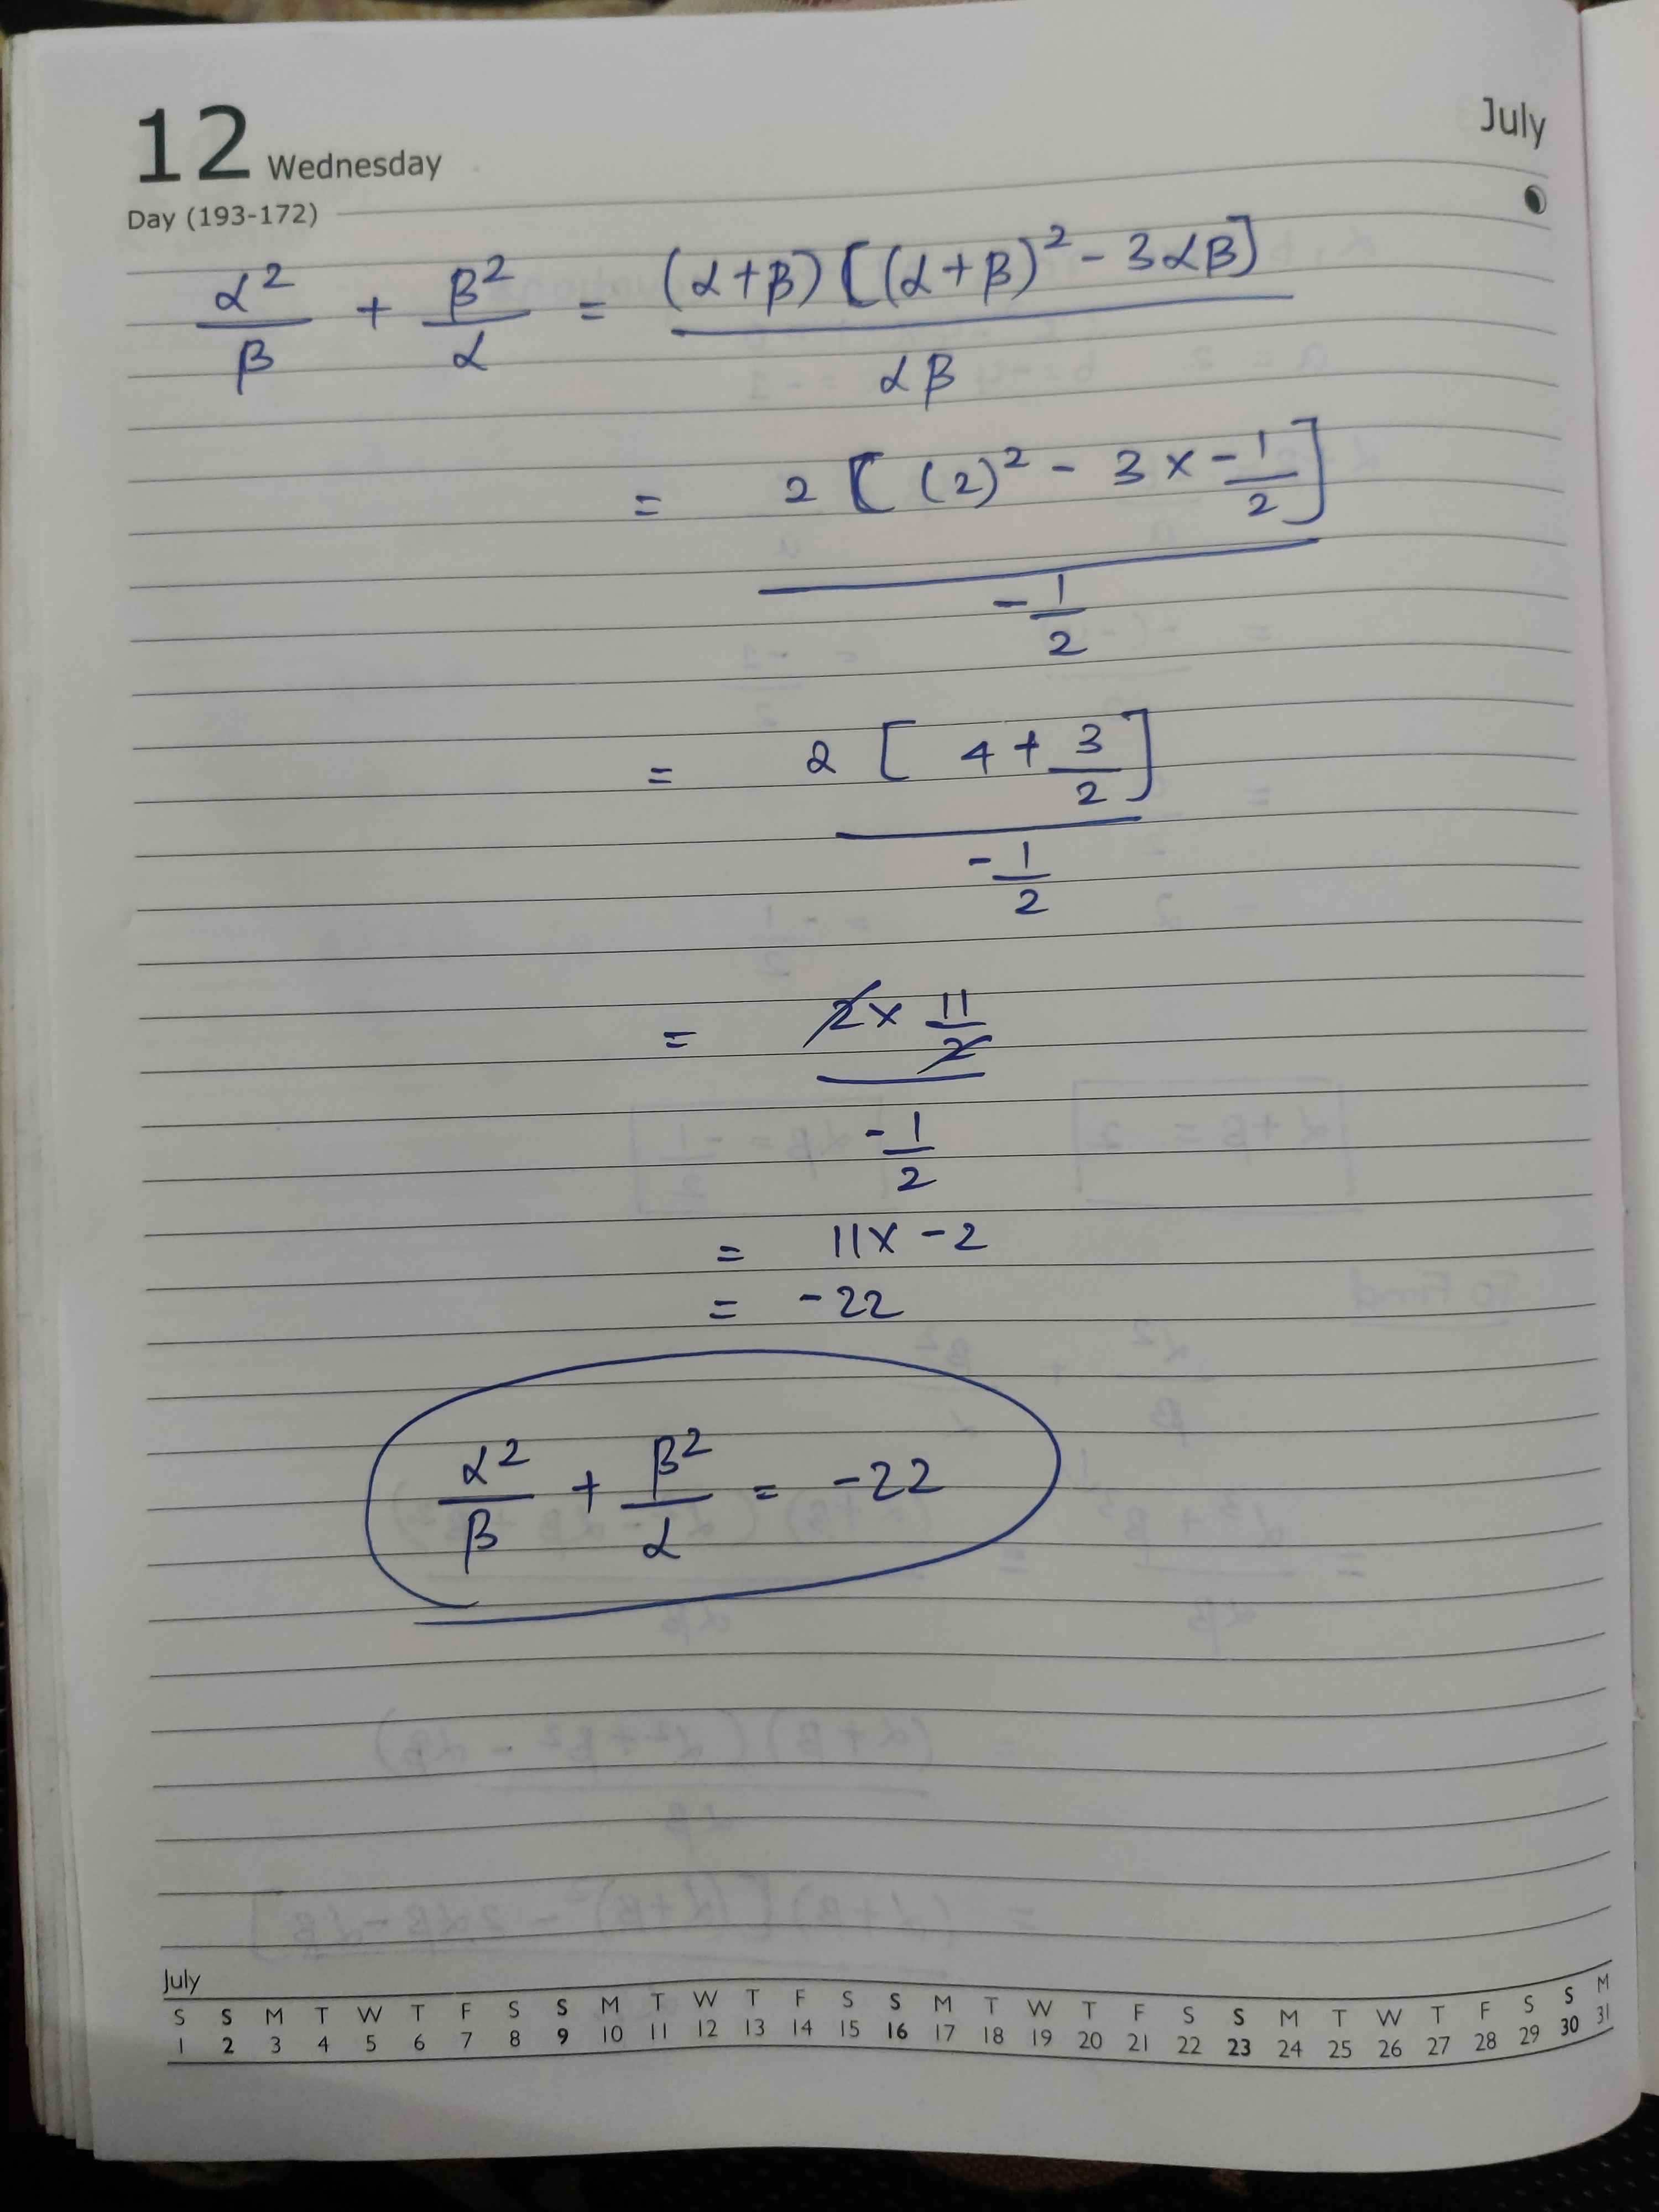 12 Wednesday
July
Day (193-172)
α²/β + β²/α = (α+β)[(α+β)² - 3αβ]/αβ
= 2[(2)² - 3 x -1/2] / -1/2
= 2[4 + 3/2] / -1/2
= 2 x 11/2 / -1/2
= 11 x -2
= -22
α²/β + β²/α = -22
July
S S M T W T F S S M T W T F S S M T W T F S S M T W T F S S M
1 2 3 4 5 6 7 8 9 10 11 12 13 14 15 16 17 18 19 20 21 22 23 24 25 26 27 28 29 30 31